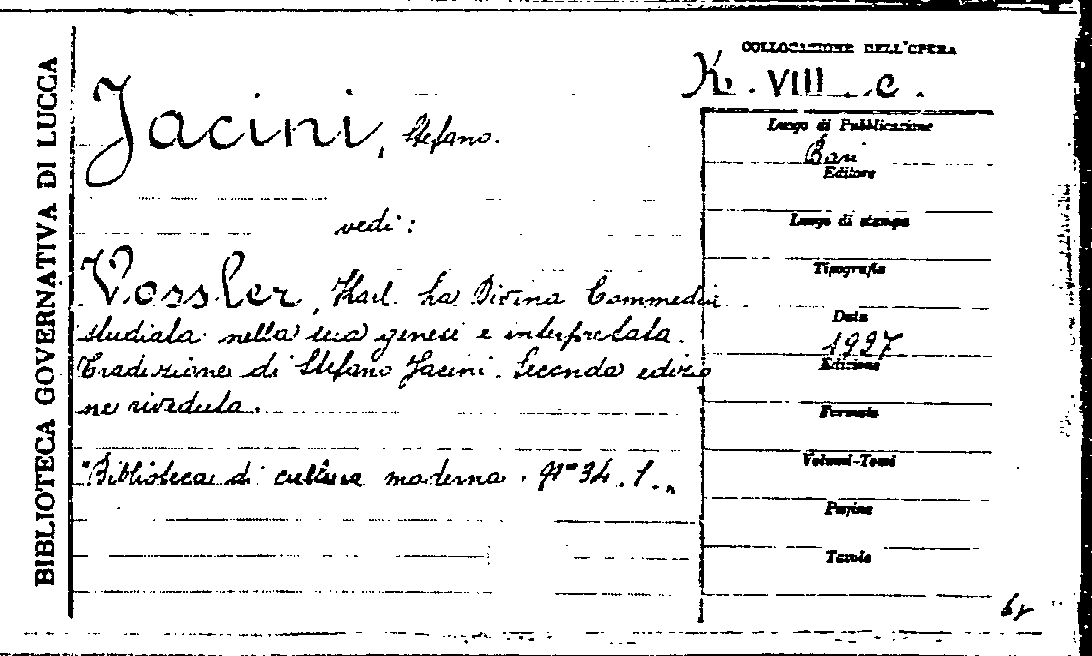 BIBLIOTECA GOVERNATIVA DI LUCCA
COLLOCAZIONE DELL'OPERA
K. VIII. c.
Jacini, Stefano.
vedi:
Vossler, Karl. La Divina Commedia
studiata nella sua genesi e interpretata.
Traduzione di Stefano Jacini. Seconda edizio
ne riveduta.
"Biblioteca di cultura moderna. N° 34. 1."
Luogo di Pubblicazione
Bari
Editore
Luogo di stampa
Tipografia
Data
1927
Edizione
Formato
Volumi-Tomi
Pagine
Tavole